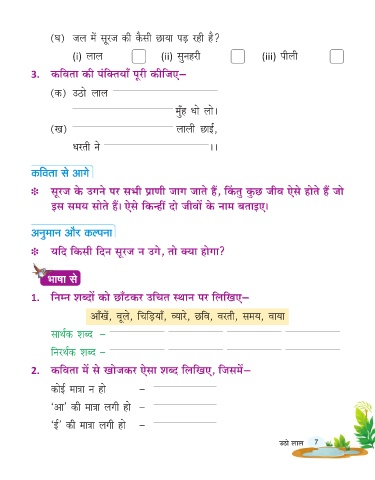 (घ) जल में सूरज की कैसी छाया पड़ रही है?
(i) लाल (ii) सुनहरी (iii) पीली
3. कविता की पंक्तियाँ पूरी कीजिए–
(क) उठो लाल
मुँह धो लो।
(ख) लाली छाई,
धरती ने ।।
कविता से आगे
❉ सूरज के उगने पर सभी प्राणी जाग जाते हैं, किंतु कुछ जीव ऐसे होते हैं जो
इस समय सोते हैं। ऐसे किन्हीं दो जीवों के नाम बताइए।
अनुमान और कल्पना
❉ यदि किसी दिन सूरज न उगे, तो क्या होगा?
भाषा से
1. निम्न शब्दों को छाँटकर उचित स्थान पर लिखिए–
आँखें, वूले, चिड़ियाँ, व्यारे, छवि, वरती, समय, वाया
सार्थक शब्द –
निरर्थक शब्द –
2. कविता में से खोजकर ऐसा शब्द लिखिए, जिसमें–
कोई मात्रा न हो –
'आ' की मात्रा लगी हो –
'ई' की मात्रा लगी हो –
उठो लाल 7